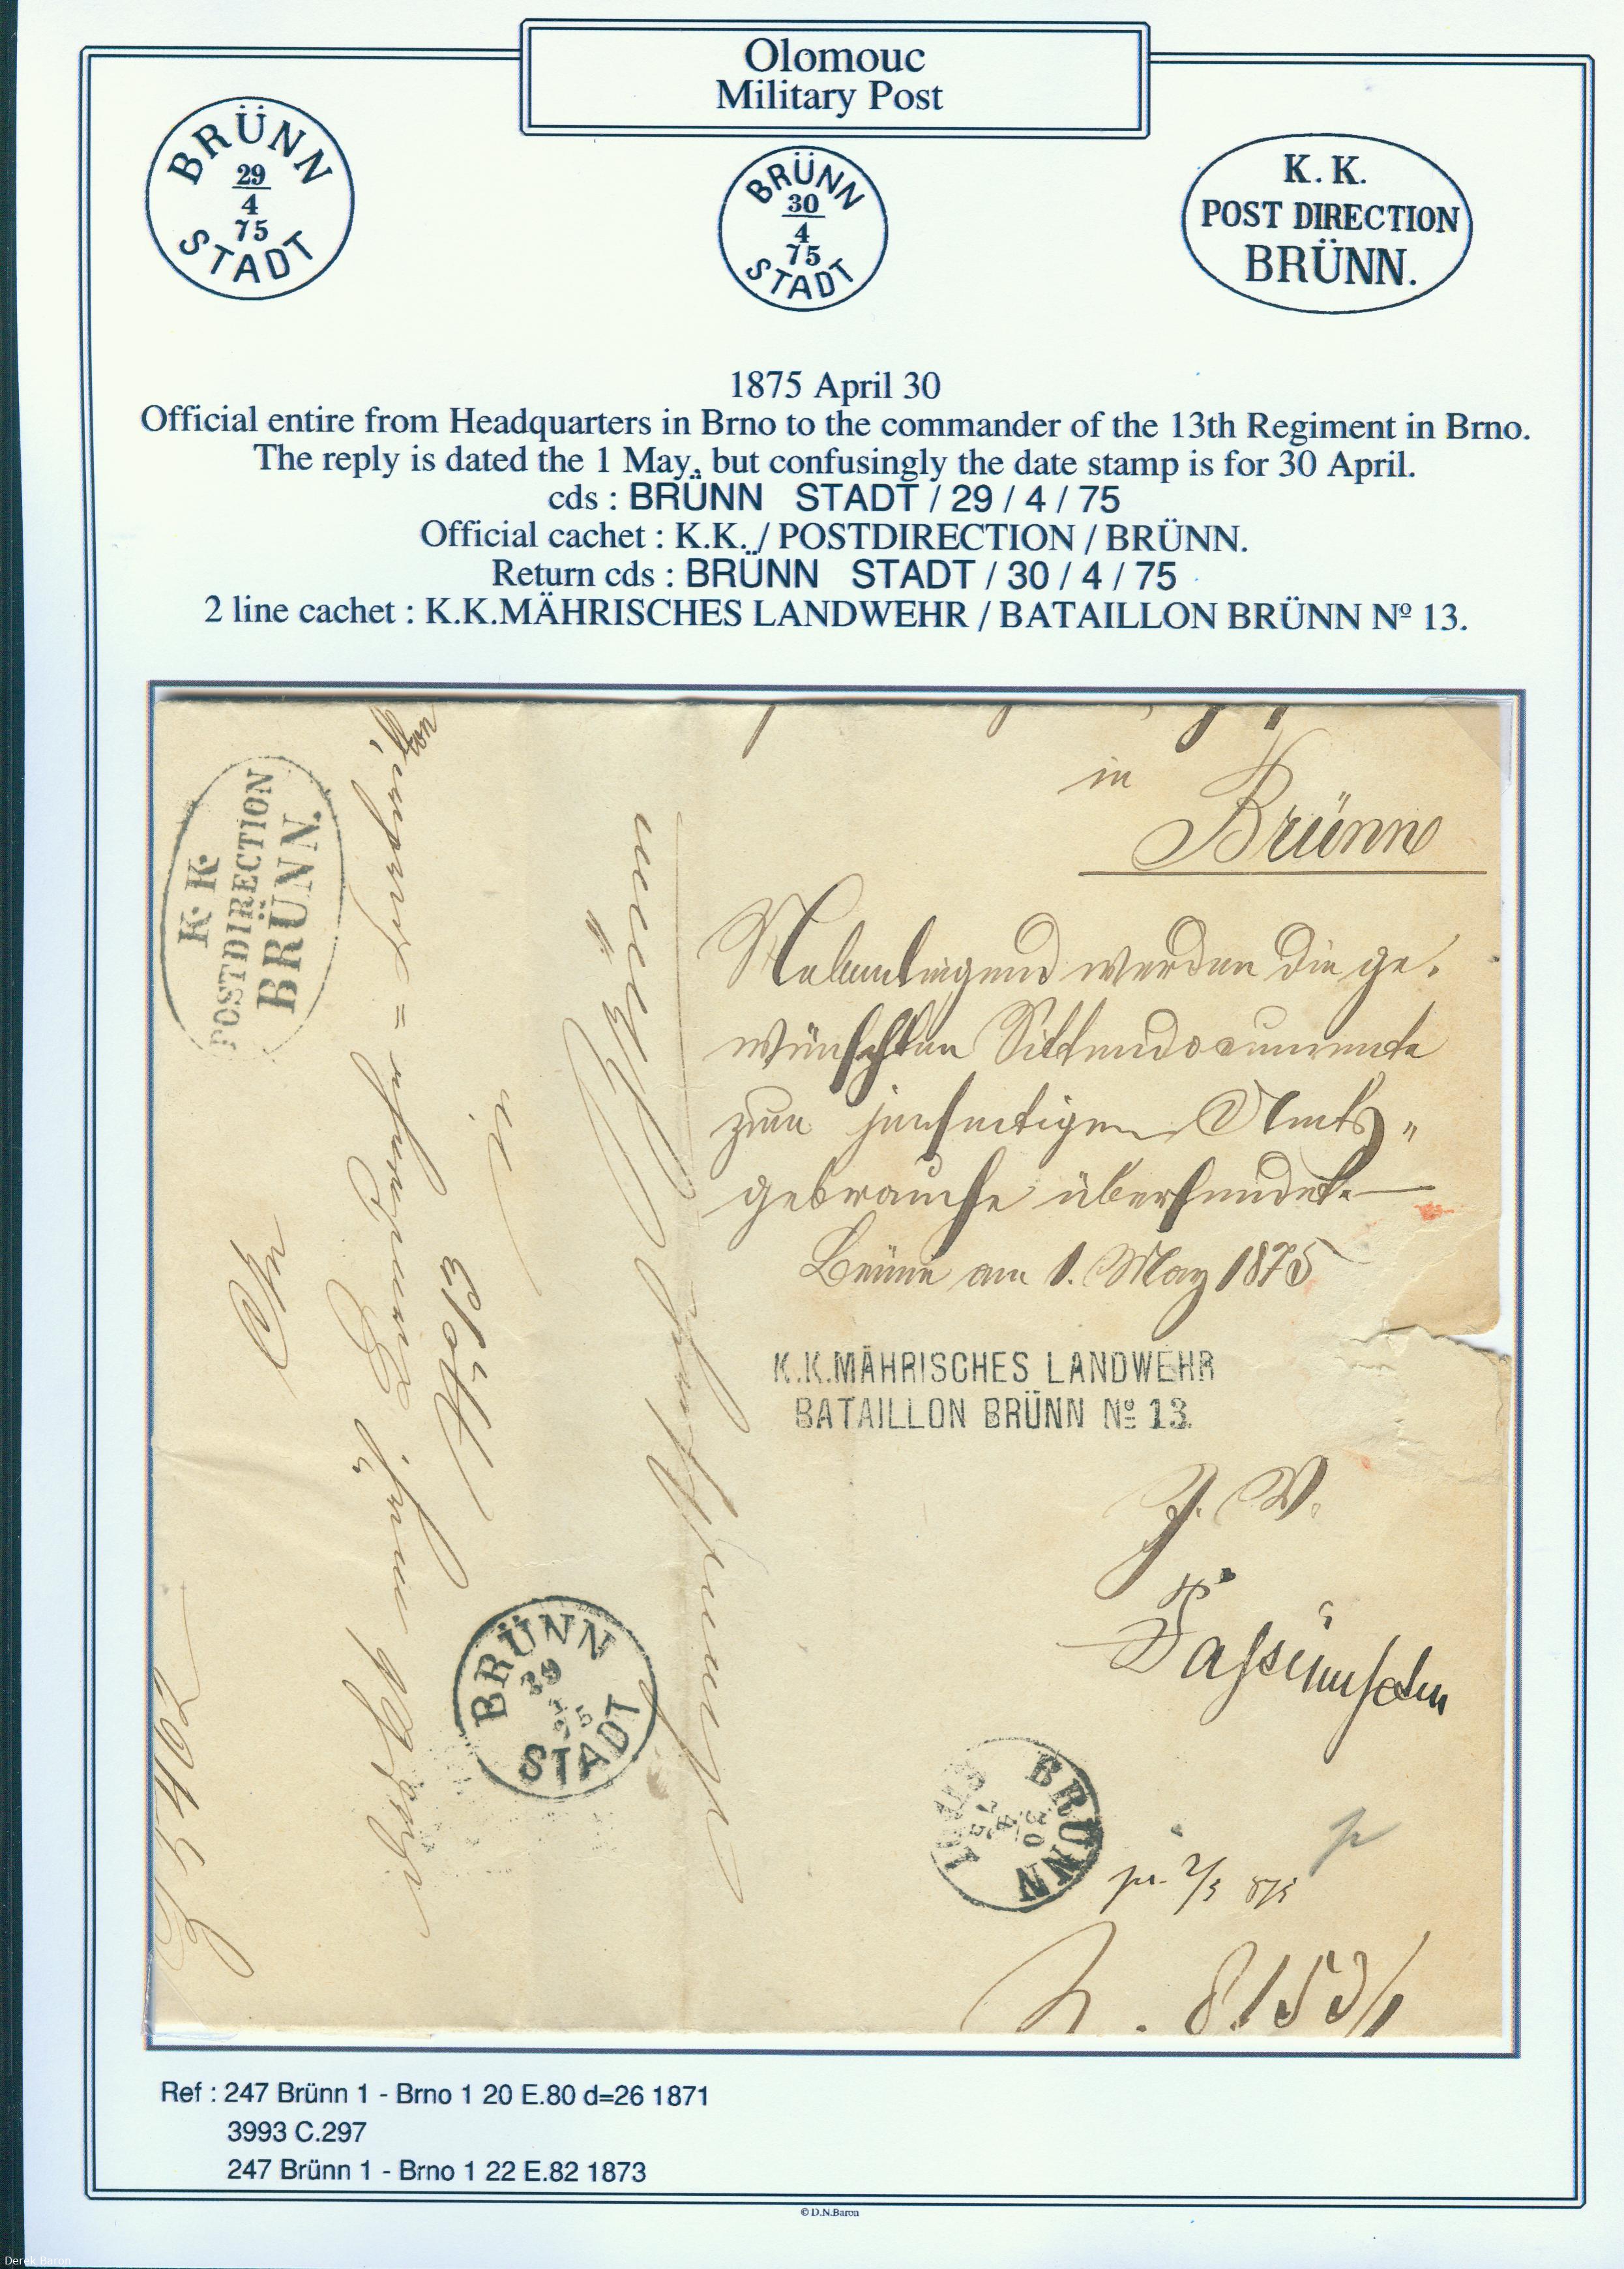 Olomouc
Military Post
BRÜNN
29
4
75
STADT
BRÜNN
30
4
75
STADT
K. K.
POST DIRECTION
BRÜNN.
1875 April 30
Official entire from Headquarters in Brno to the commander of the 13th Regiment in Brno.
The reply is dated the 1 May, but confusingly the date stamp is for 30 April.
cds : BRÜNN STADT / 29 / 4 / 75
Official cachet : K.K. / POSTDIRECTION / BRÜNN.
Return cds : BRÜNN STADT / 30 / 4 / 75
2 line cachet : K.K.MÄHRISCHES LANDWEHR / BATAILLON BRÜNN Nº 13.
K. K.
POSTDIRECTION
BRÜNN.
An
Nº 13
in
Brünn
in
Brünn
Nebenliegend werden die ge-
wünschten Sittendocumente
zum jenseitigen Amts"
gebrauche übersendet.
Brünn am 1. May 1875
K.K.MÄHRISCHES LANDWEHR
BATAILLON BRÜNN Nº 13.
J. V.
BRÜNN
STADT
BRÜNN
30
4
75
STADT
Ref : 247 Brünn 1 - Brno 1 20 E.80 d=26 1871
3993 C.297
247 Brünn 1 - Brno 1 22 E.82 1873
© D.N.Baron
Derek Baron